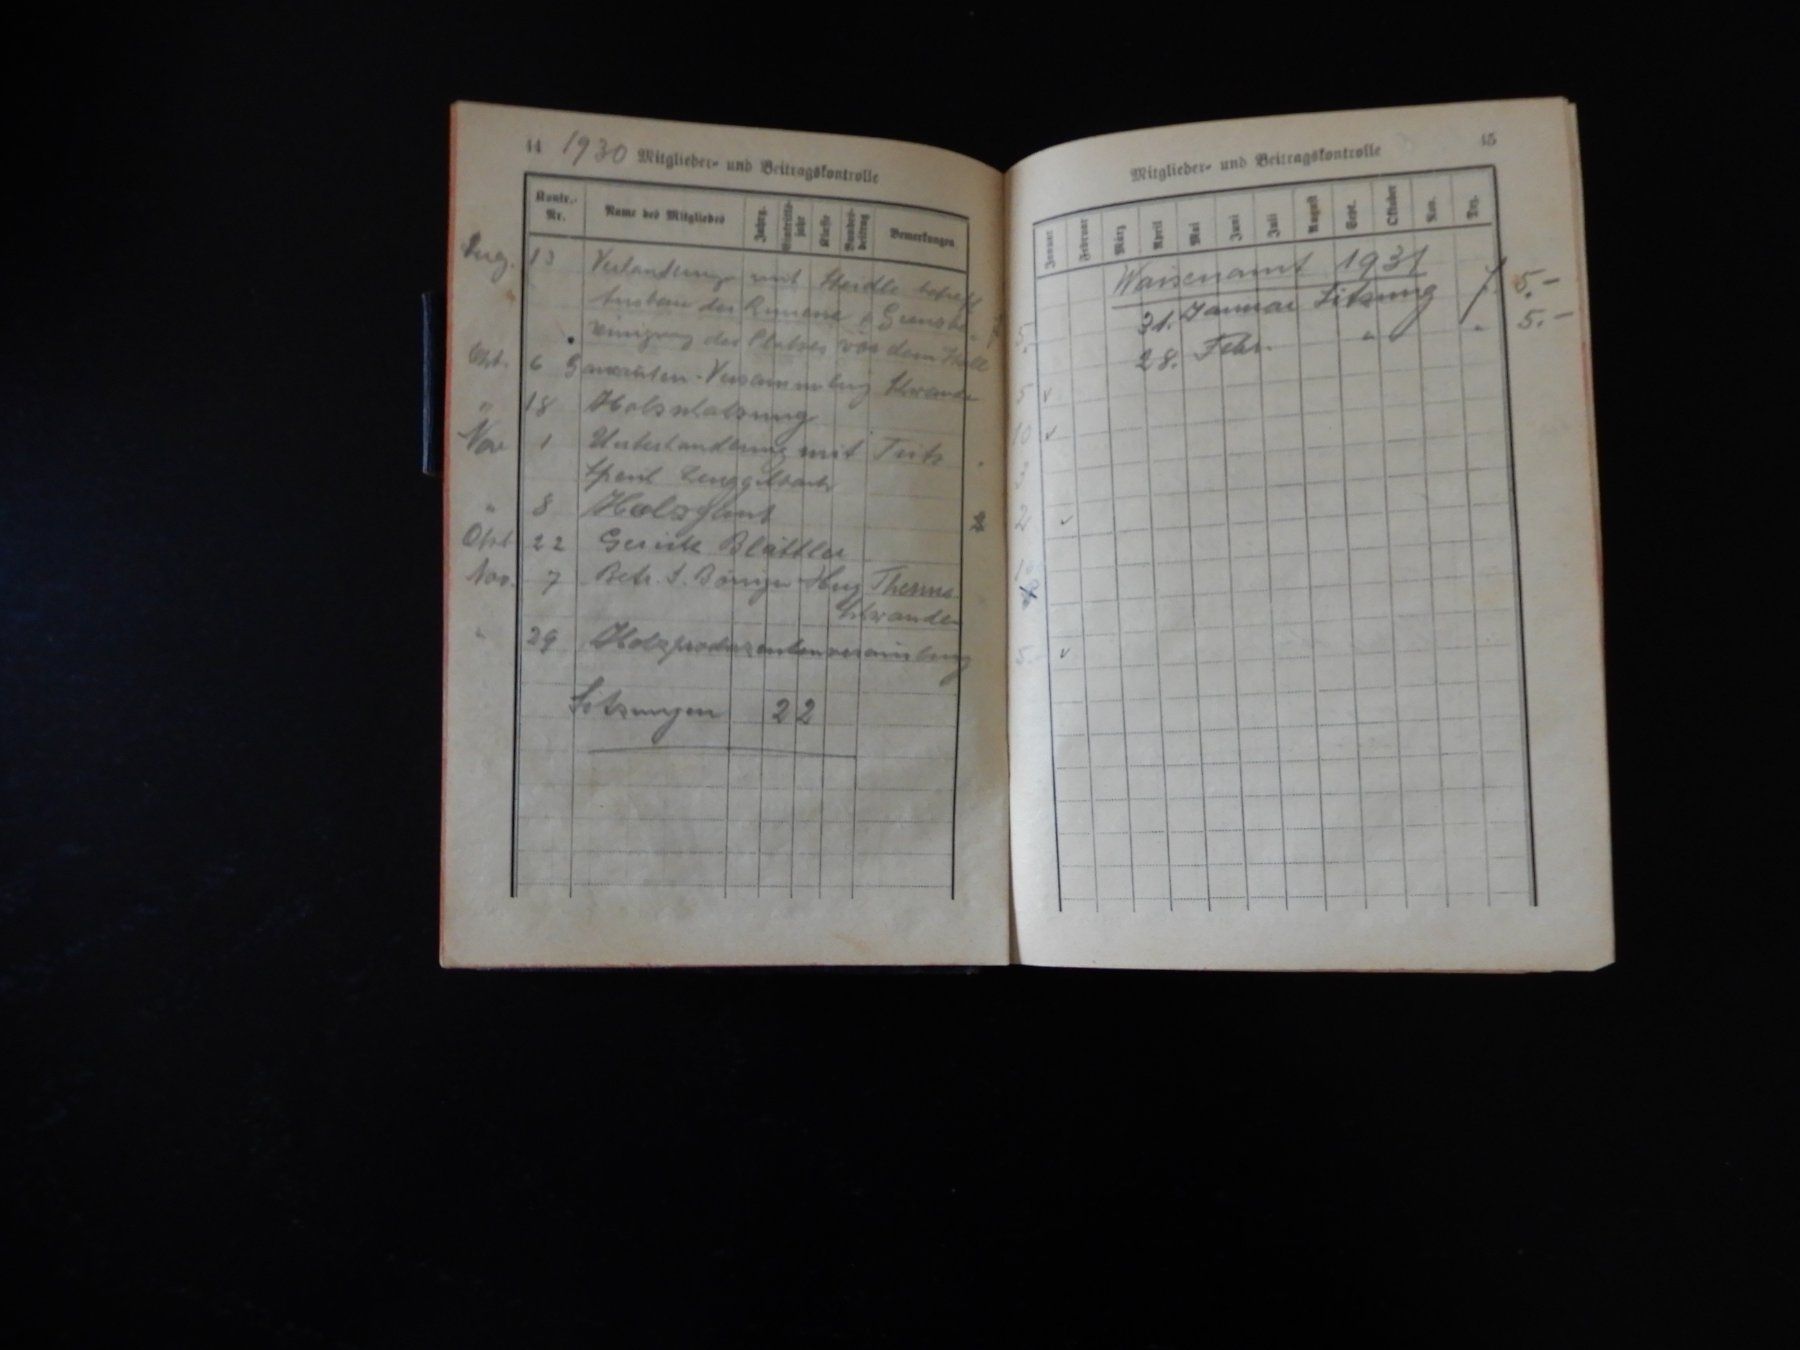 44 1930 Mitglieder- und Beitragskontrolle
Kontr.-Nr. Name des Mitgliedes Jahrg. Eintrittsjahr Klasse Bundesbeitrag Bemerkungen
Aug. 13 mit Heidle betreff
Ausbau der & Grenzbe-
reinigung des Platzes vor dem Stall
Okt. 6 Versammlung Schwanden
" 18 Holzschatzung
Nov 1 Unterhandlung mit Fritz
" 8 Holzgant
Okt 22 Blättler
Nov. 7 Betr. S. Böniger Hug Thermo.
Schwanden
" 29 Holzproduzentenversamlung
Sitzungen 22
Mitglieder- und Beitragskontrolle 45
Januar Februar März April Mai Juni Juli August Sept. Oktober Nov. Dez.
Waisenamt 1931
31. Januar Sitzung / 5.-
28. Febr. " " 5.-
5.
5 ✓
10 ✓
3
2 ✓
10
5.- ✓